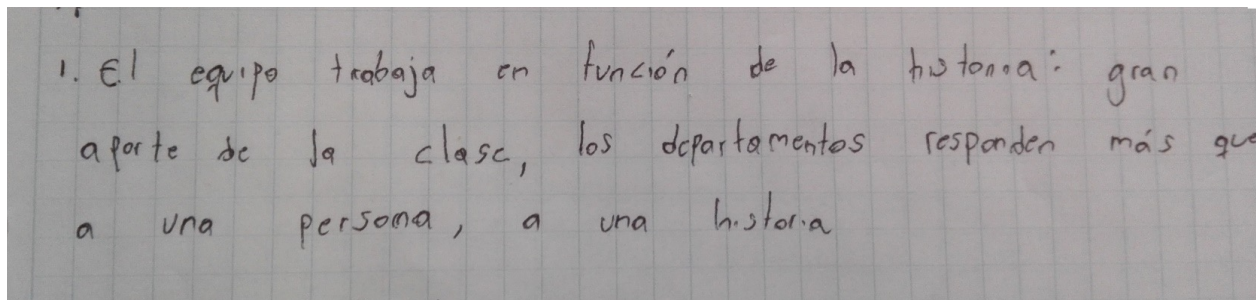 1. El equipo trabaja en función de la historia: gran
aporte de la clase, los departamentos responden más que
a una persona, a una historia